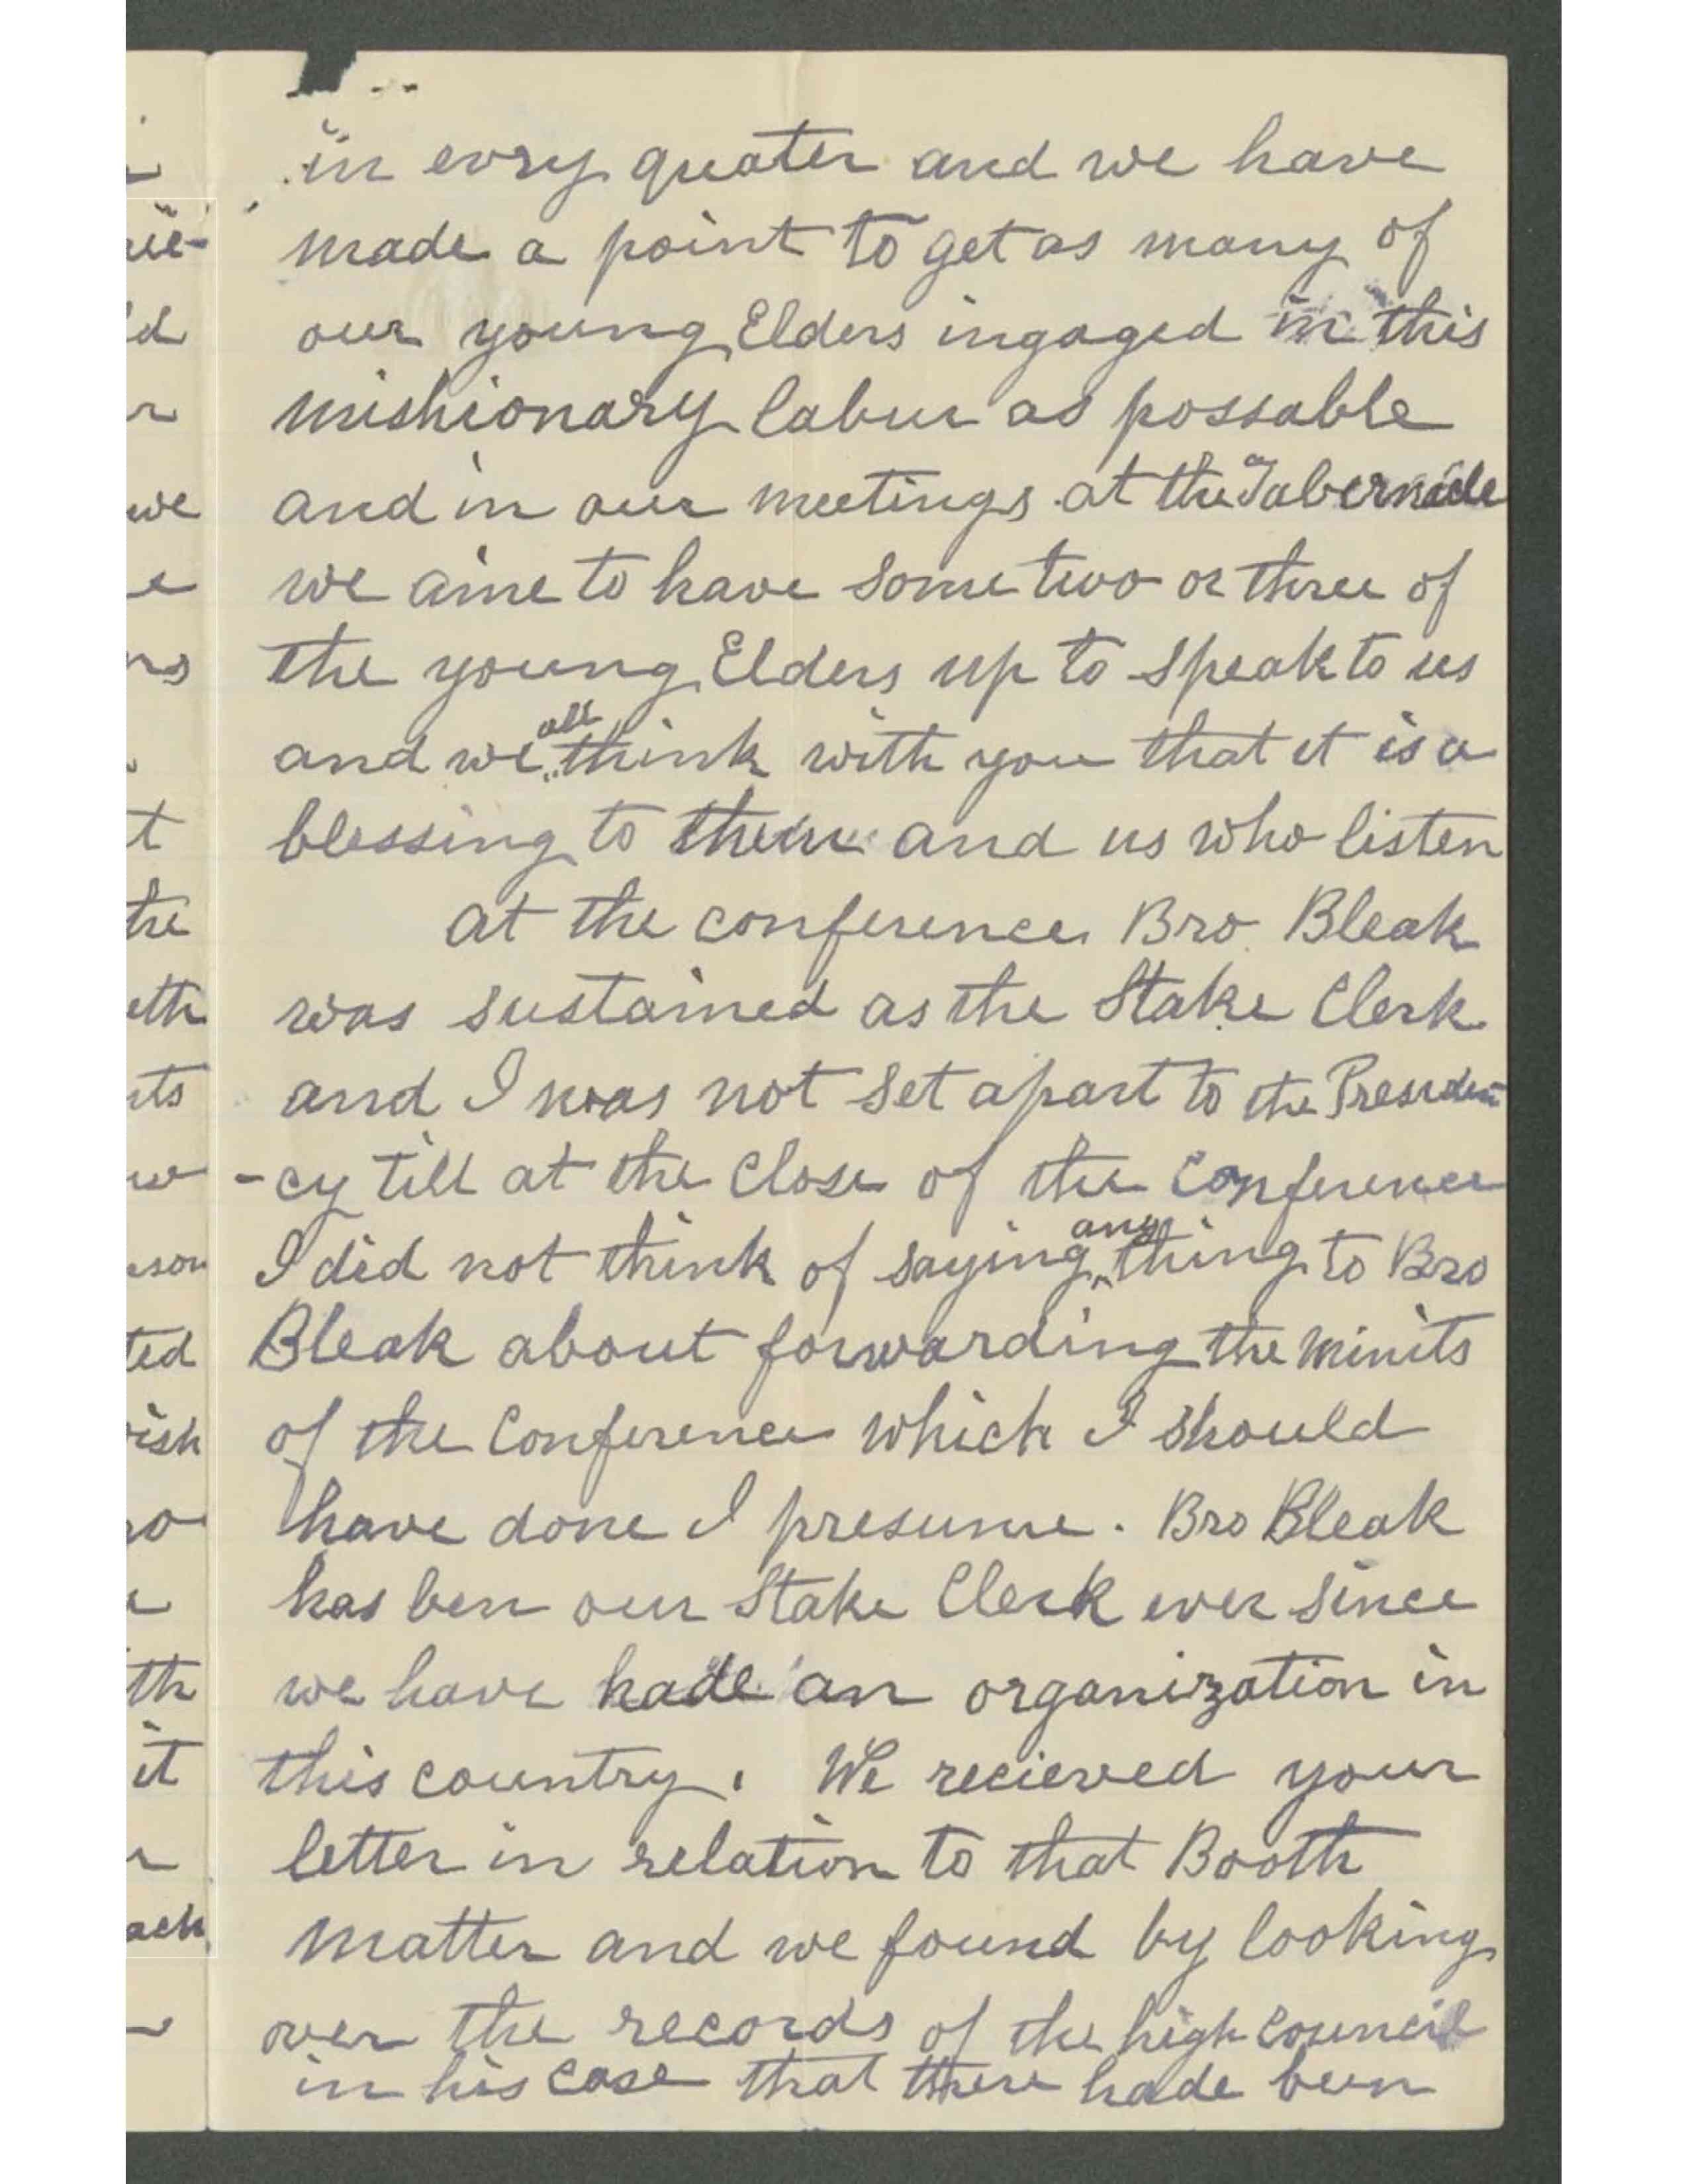 in evry quater and we have
made a point to get as many of
our young Elders ingaged in this
mishionary labur as possable
and in our meetings at the Tabernacle
we aime to have some two or three of
the young Elders up to speak to us
and we all think with you that it is a
blessing to them and us who listen
at the conference Bro Bleak
was sustained as the Stake Clerk
and I was not set apart to the Presiden
-cy till at the close of the Conference
I did not think of saying any thing to Bro
Bleak about forwarding the minits
of the Conference which I should
have done I presume. Bro Bleak
has ben our Stake Clerk ever since
we have hade an organization in
this country. We recieved your
letter in relation to that Booth
matter and we found by looking
over the records of the high Council
in his case that there hade been